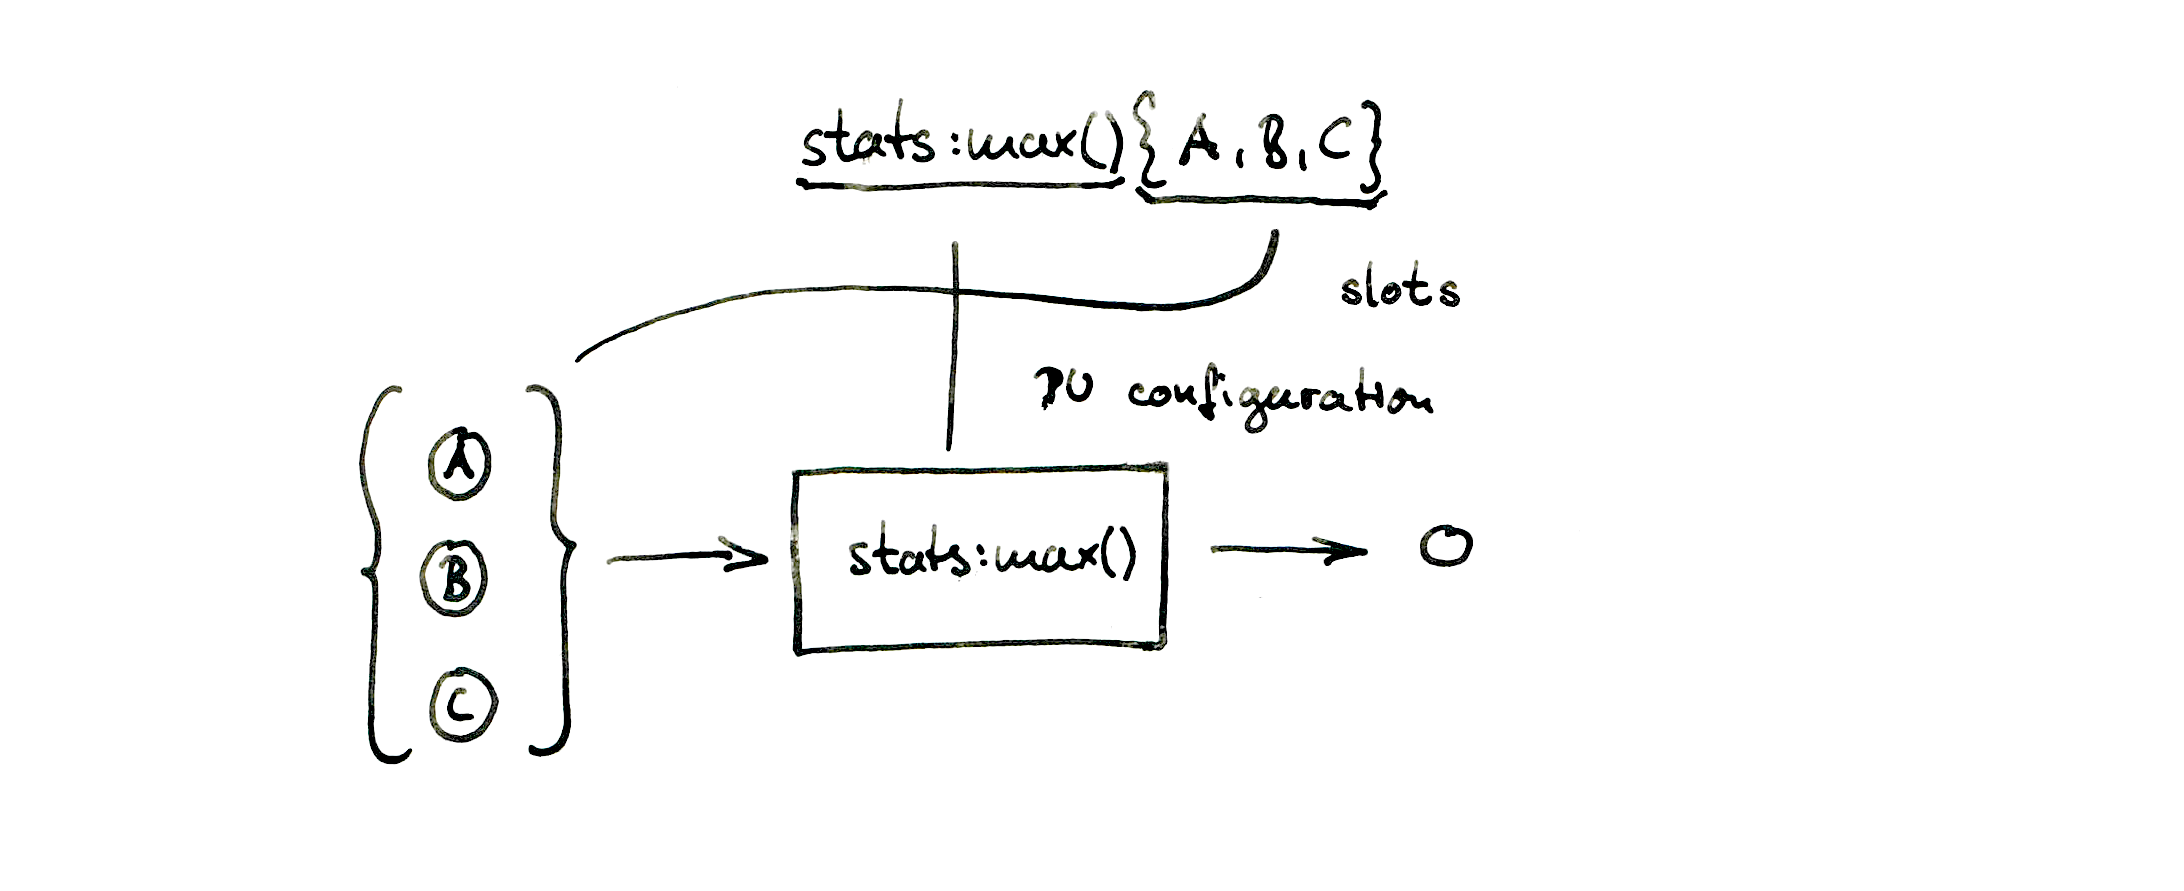 stats:max(){A,B,C}
slots
PU configuration
A
B
C
stats:max()